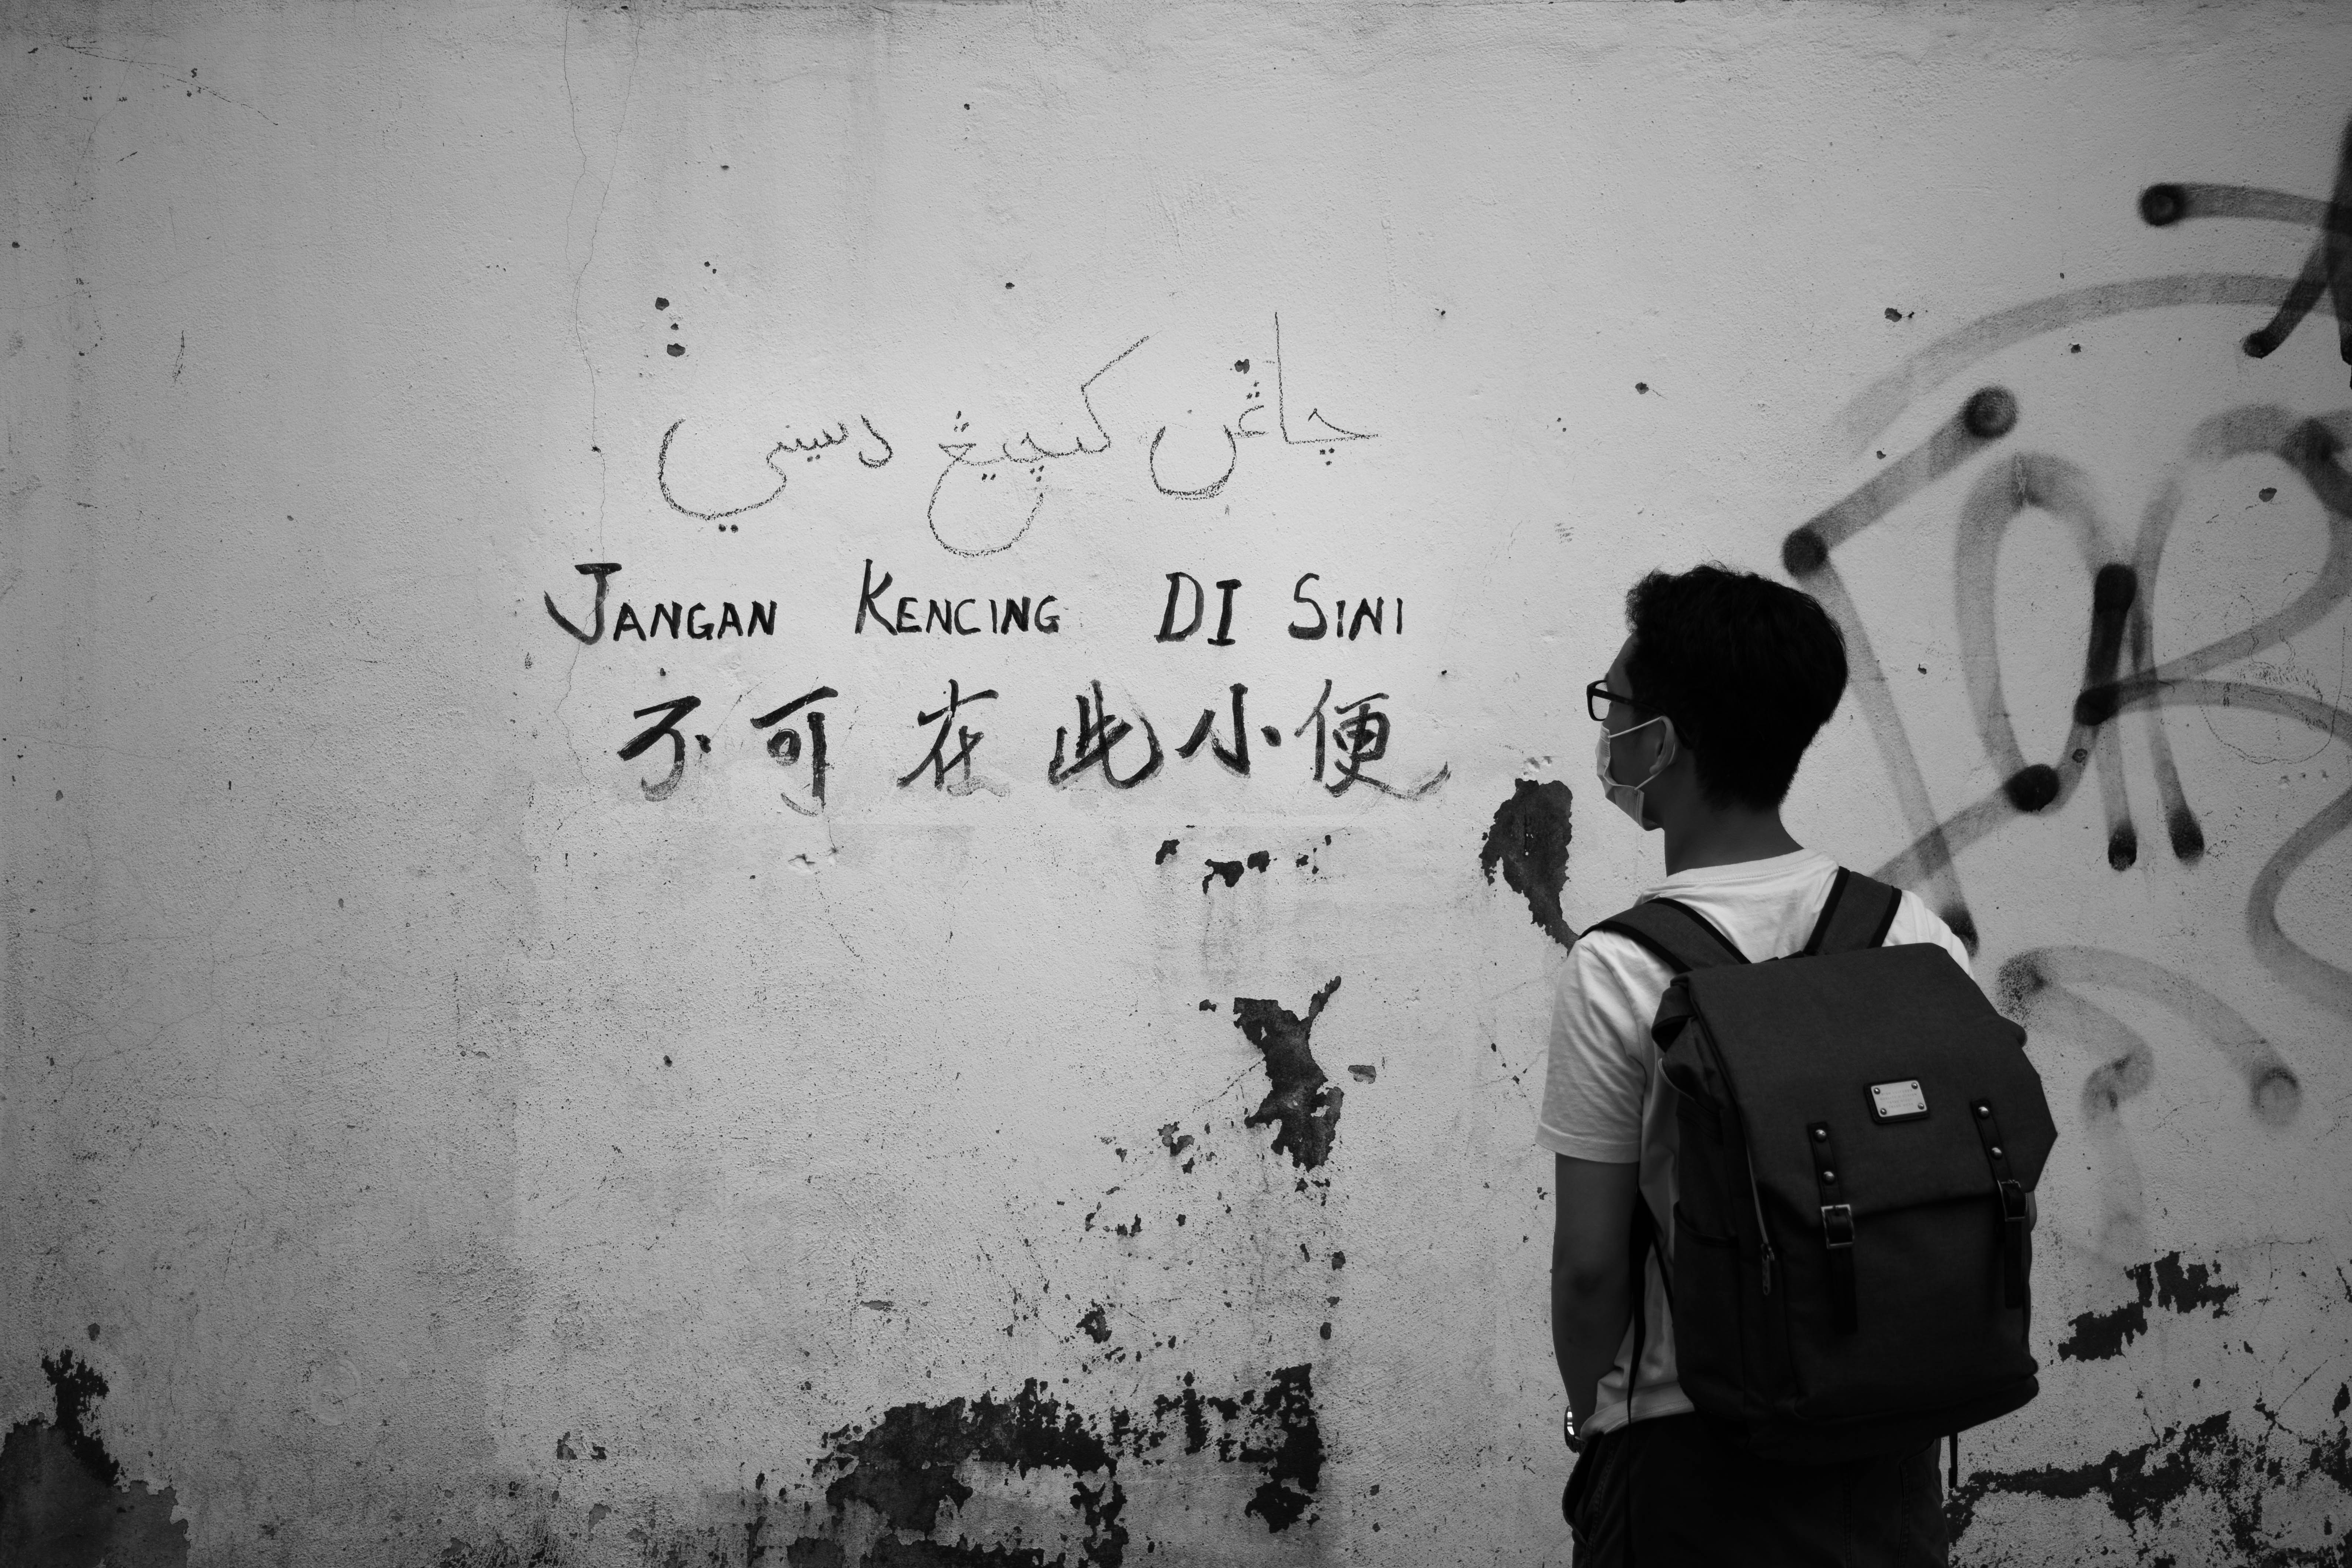 چاڠن كنچيڠ دسيني
JANGAN KENCING DI SINI
不可在此小便